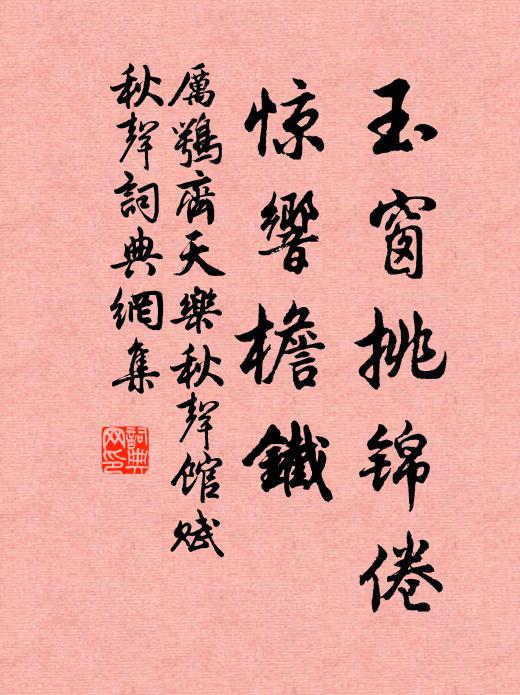 玉窗挑锦倦
惊響檐鐵
厲鶚齊天樂秋聲館賦
秋聲詞典網集
詞典
网印